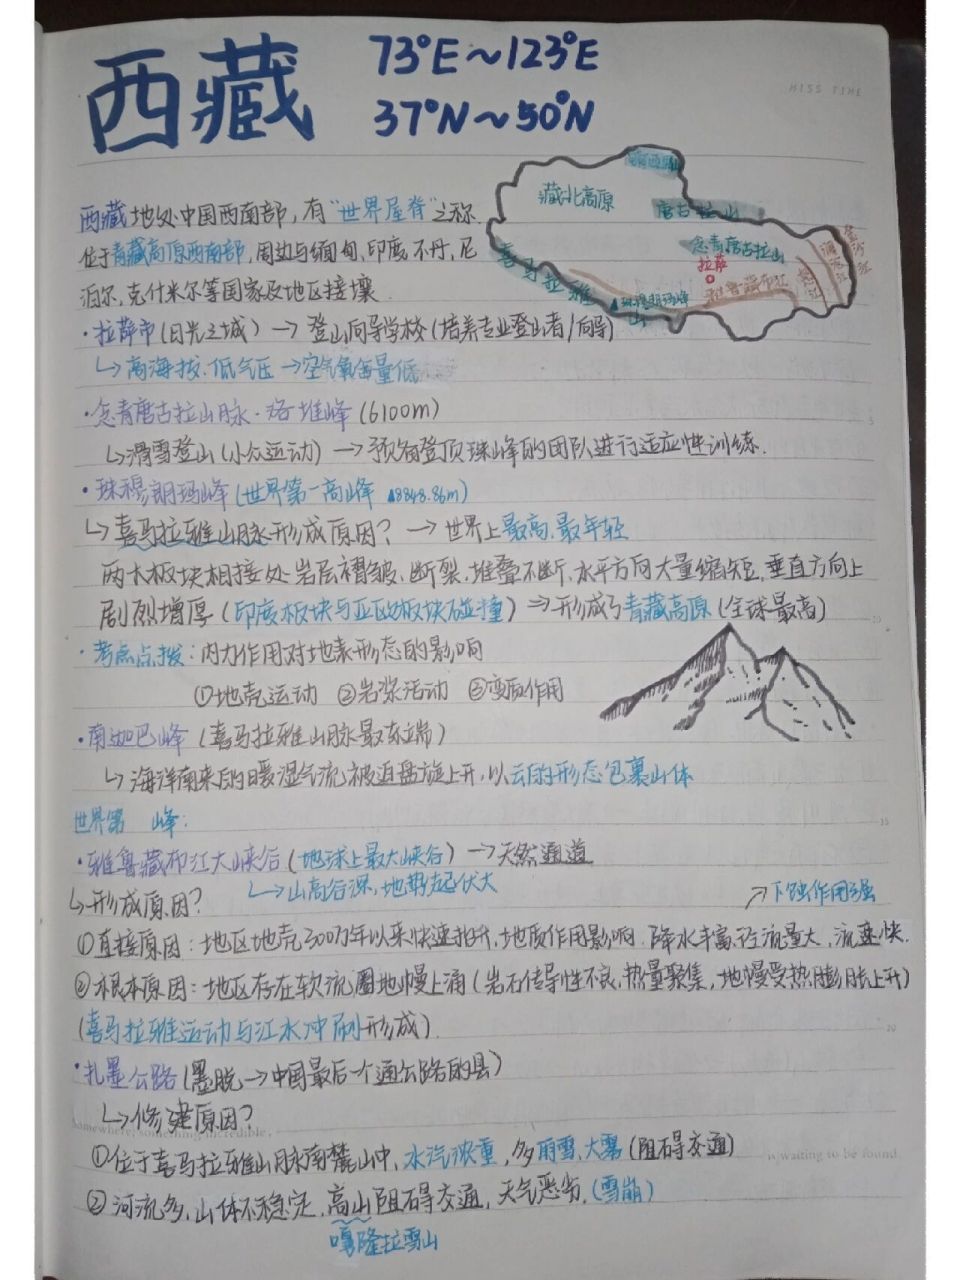 西藏
73°E～123°E
37°N～50°N
MISS TIME
西藏地处中国西南部，有“世界屋脊”之称
位于青藏高原西南部，周边与缅甸、印度、不丹、尼
泊尔，克什米尔等国家及地区接壤
藏北高原
唐古拉山
念青唐古拉山
拉萨
喜马拉雅山
▲珠穆朗玛峰
雅鲁藏布江
怒江
澜沧江
金沙江
·拉萨市（日光之城）→登山向导学校（培养专业登山者/向导）
↳高海拔、低气压→空气氧含量低
·念青唐古拉山脉·洛堆峰（6100m）
↳滑雪登山（小众运动）→预备登顶珠峰的团队进行适应性训练.
·珠穆朗玛峰（世界第一高峰 ▲8848.86m）
↳喜马拉雅山脉形成原因？→世界上最高、最年轻
两大板块相接处岩层褶皱、断裂、堆叠不断、水平方向大量缩短，垂直方向上
剧烈增厚（印度板块与亚欧板块碰撞）⇒形成了青藏高原（全球最高）
·考点点拨：内力作用对地表形态的影响
①地壳运动 ②岩浆活动 ③变质作用
·南迦巴峰（喜马拉雅山脉最东端）
↳海洋南来的暖湿气流被迫盘旋上升，以云的形态包裹山体
世界第 峰：
·雅鲁藏布江大峡谷（地球上最大峡谷）→天然通道
↳山高谷深，地势起伏大
↗下蚀作用强
↳形成原因？
①直接原因：地区地壳300万年以来快速抬升，地质作用影响. 降水丰富、径流量大，流速快.
②根本原因：地区存在软流圈地幔上涌（岩石传导性不良，热量聚集，地幔受热膨胀上升）
（喜马拉雅运动与江水冲刷形成）.
·扎墨公路（墨脱→中国最后一个通公路的县）
↳修建原因？
Somewhere, something incredible,
①位于喜马拉雅山脉南麓山中，水汽浓重，多雨雪、大雾（阻碍交通）
is waiting to be found.
②河流多，山体不稳定，高山阻碍交通，天气恶劣，（雪崩）
嘎隆拉雪山